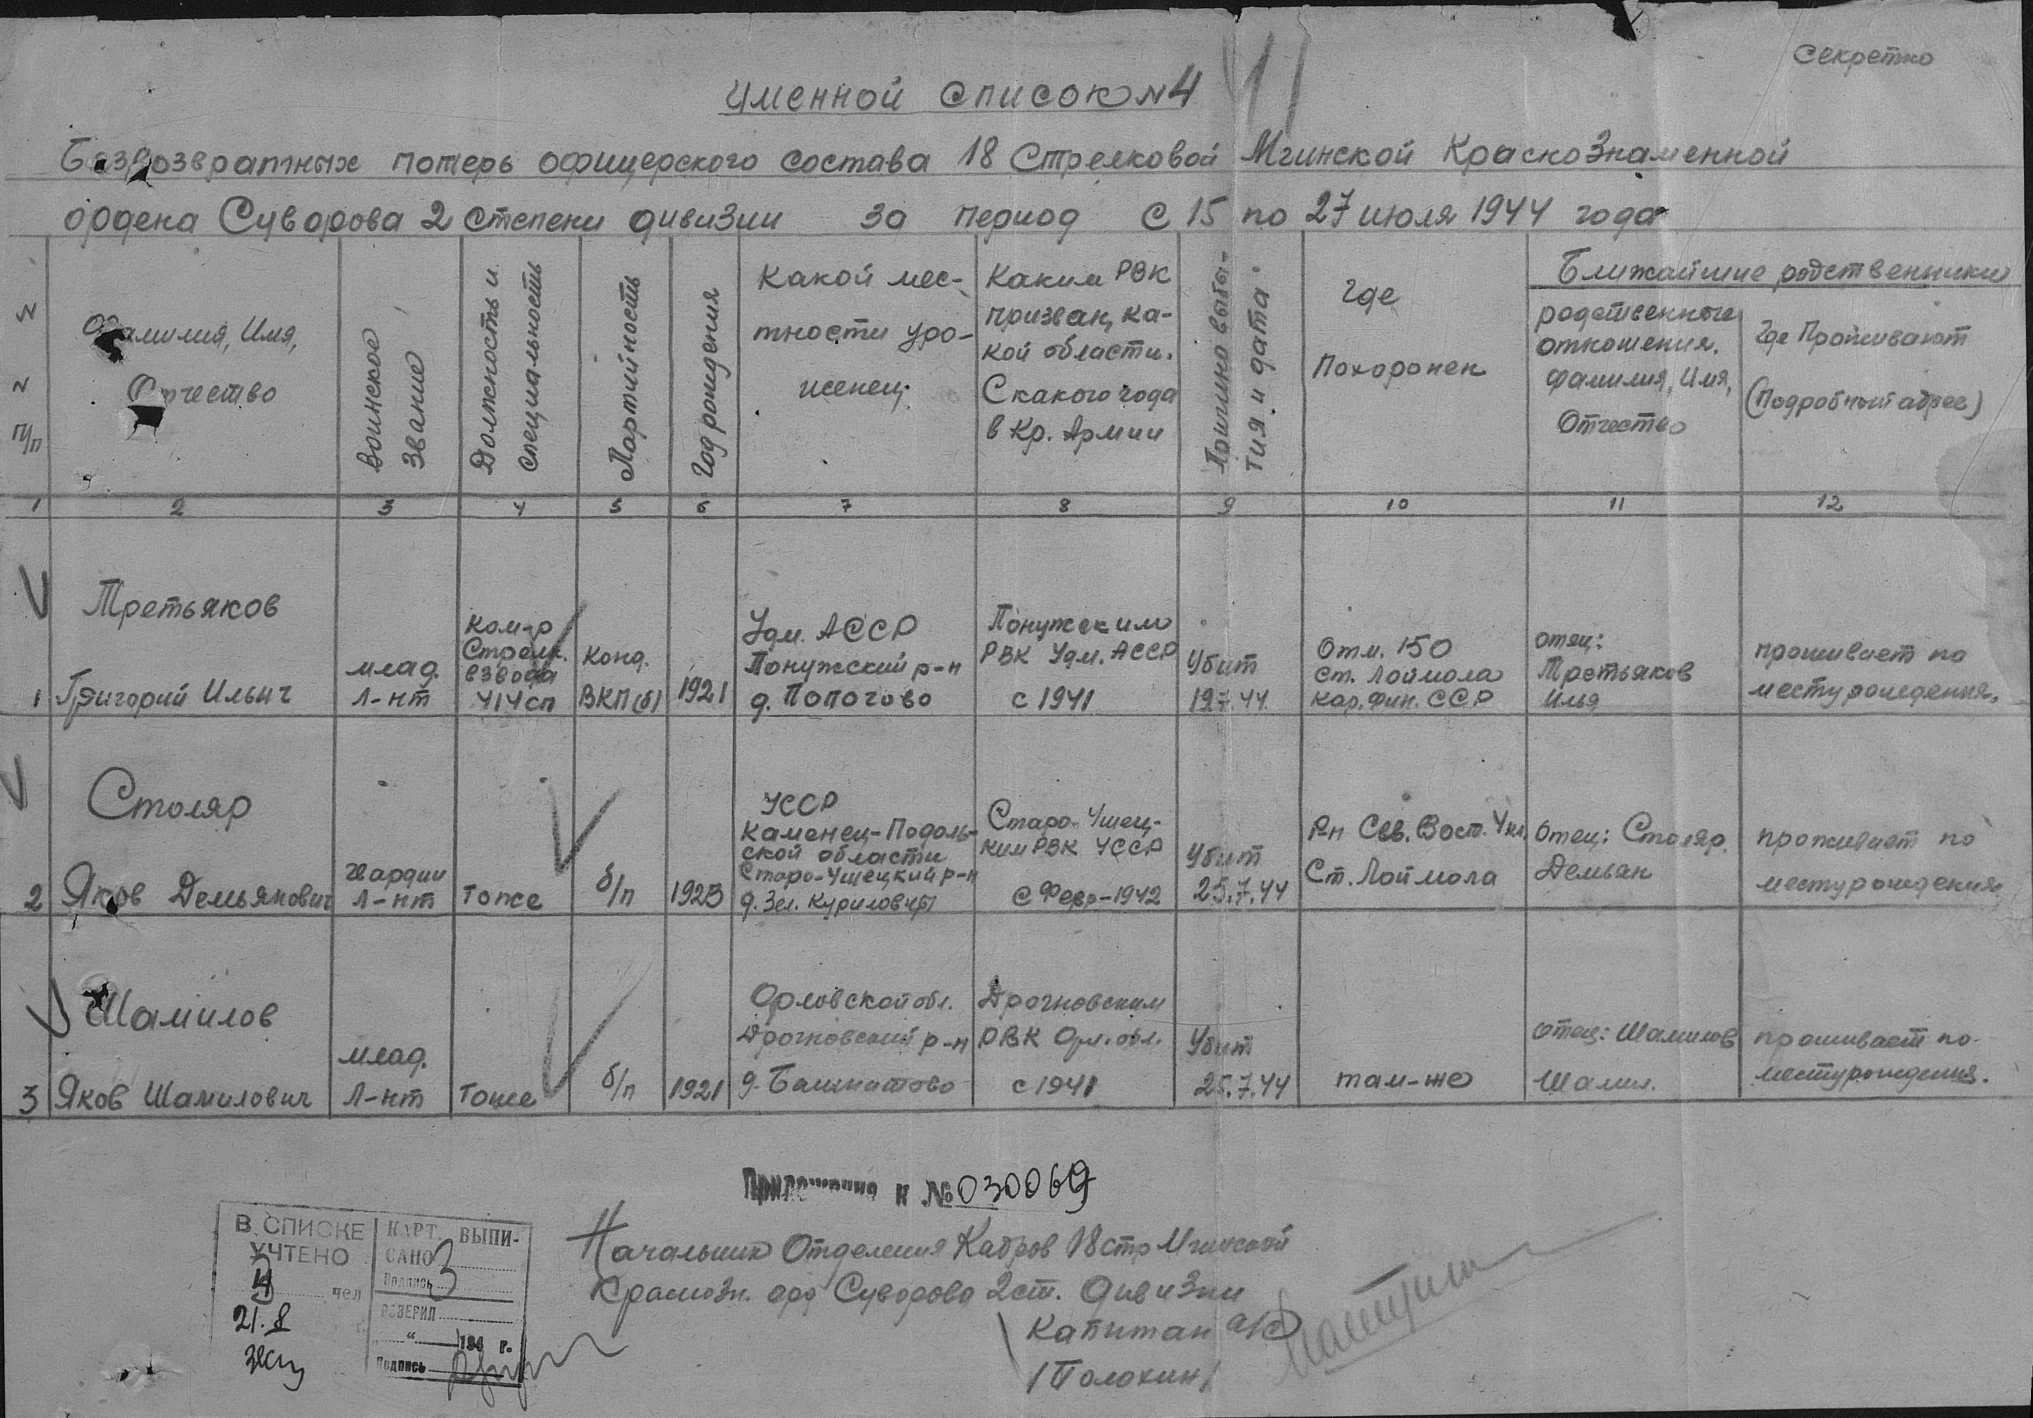 Секретно
Именной список N 4
Безвозвратных потерь офицерского состава 18 Стрелковой Мгинской Краснознаменной
ордена Суворова 2 степени дивизии за период с 15 по 27 июля 1944 года
N
N
п/п
Фамилия, Имя,
Отчество
Воинское
звание
Должность и
специальность
Партийность
Год рождения
Какой мес-
тности уро-
женец
Каким РВК
призван, ка-
кой области.
С какого года
в Кр. Армии
Причина выбы-
тия и дата
Где
Похоронен
Ближайшие родственники
родственные
отношения.
фамилия, Имя,
Отчество
Где Проживают
(Подробный адрес)
1 2 3 4 5 6 7 8 9 10 11 12
1
Третьяков
Григорий Ильич
млад.
л-нт
ком-р
Стрелк.
взвода
414 сп
Конд.
ВКП(б)
1921
Удм. АССР
Понужский р-н
д. Попогово
Понужским
РВК Удм. АССР
с 1941
Убит
19.7.44
Отм. 150
ст. Лоймола
Кар. фин. ССР
отец:
Третьяков
Илья
проживает по
месту рождения.
2
Столяр
Яков Демьянович
гвардии
л-нт
тоже
б/п
1923
УССР
Каменец-Подоль-
ской области
Старо-Ушецкий р-н
д. Зел. Куриловцы
Старо-Ушец-
ким РВК УССР
с февр-1942
Убит
25.7.44
Р-н Сев. Вост. Укл
Ст. Лоймола
Отец: Столяр
Демьян
проживает по
месту рождения
3
Шамилов
Яков Шамилович
млад.
л-нт
тоже
б/п
1921
Орловской обл.
Дрогновский р-н
д. Башкатово
Дрогновским
РВК Орл. обл.
с 1941
Убит
25.7.44
там-же
отец: Шамилов
Шамил.
проживает по
месту рождения.
Приложение к № 030069
В СПИСКЕ
УЧТЕНО
чел
21.8
КАРТ. ВЫПИ-
САНО 3
Подпись
ПРОВЕРИЛ
" 194 г.
Подпись
Начальник Отделения Кадров 18 стр Мгинской
Краснозн. орд Суворова 2 ст. дивизии
Капитан а/с
/Полохин/